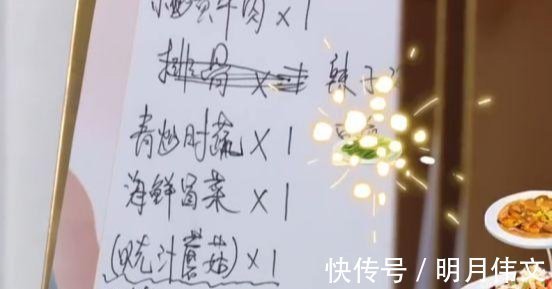 牛肉×1
排骨×1 辣子
青炒时蔬×1
海鲜冒菜×1
(鲍汁蘑菇)×1
快传号 / 明月伟文